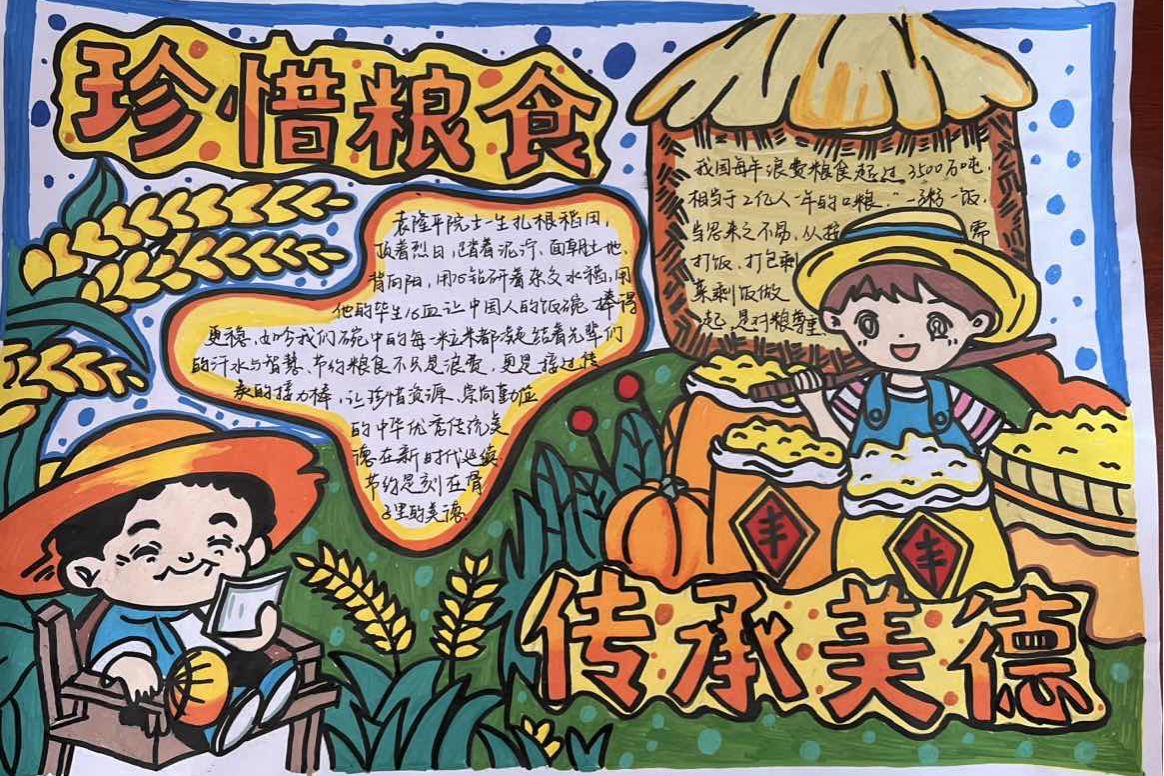 珍惜粮食
袁隆平院士一生扎根稻田,
顶着烈日,踏着泥泞、面朝土地、
背向阳,用心钻研着杂交水稻,用
他的毕生心血让中国人的饭碗捧得
更稳、如今我们碗中的每一粒米都凝结着先辈们
的汗水与智慧、节约粮食不只是浪费,更是接过传
承的接力棒,让珍惜资源、崇尚勤俭
的中华优秀传统美
德在新时代延续
节约是刻在骨
子里的美德
我国每年浪费粮食超过3500万吨,
相当于2亿人一年的口粮.一粥一饭,
当思来之不易,从按 需
打饭、打包剩
菜剩饭做
起,是对粮
丰
丰
传承美德